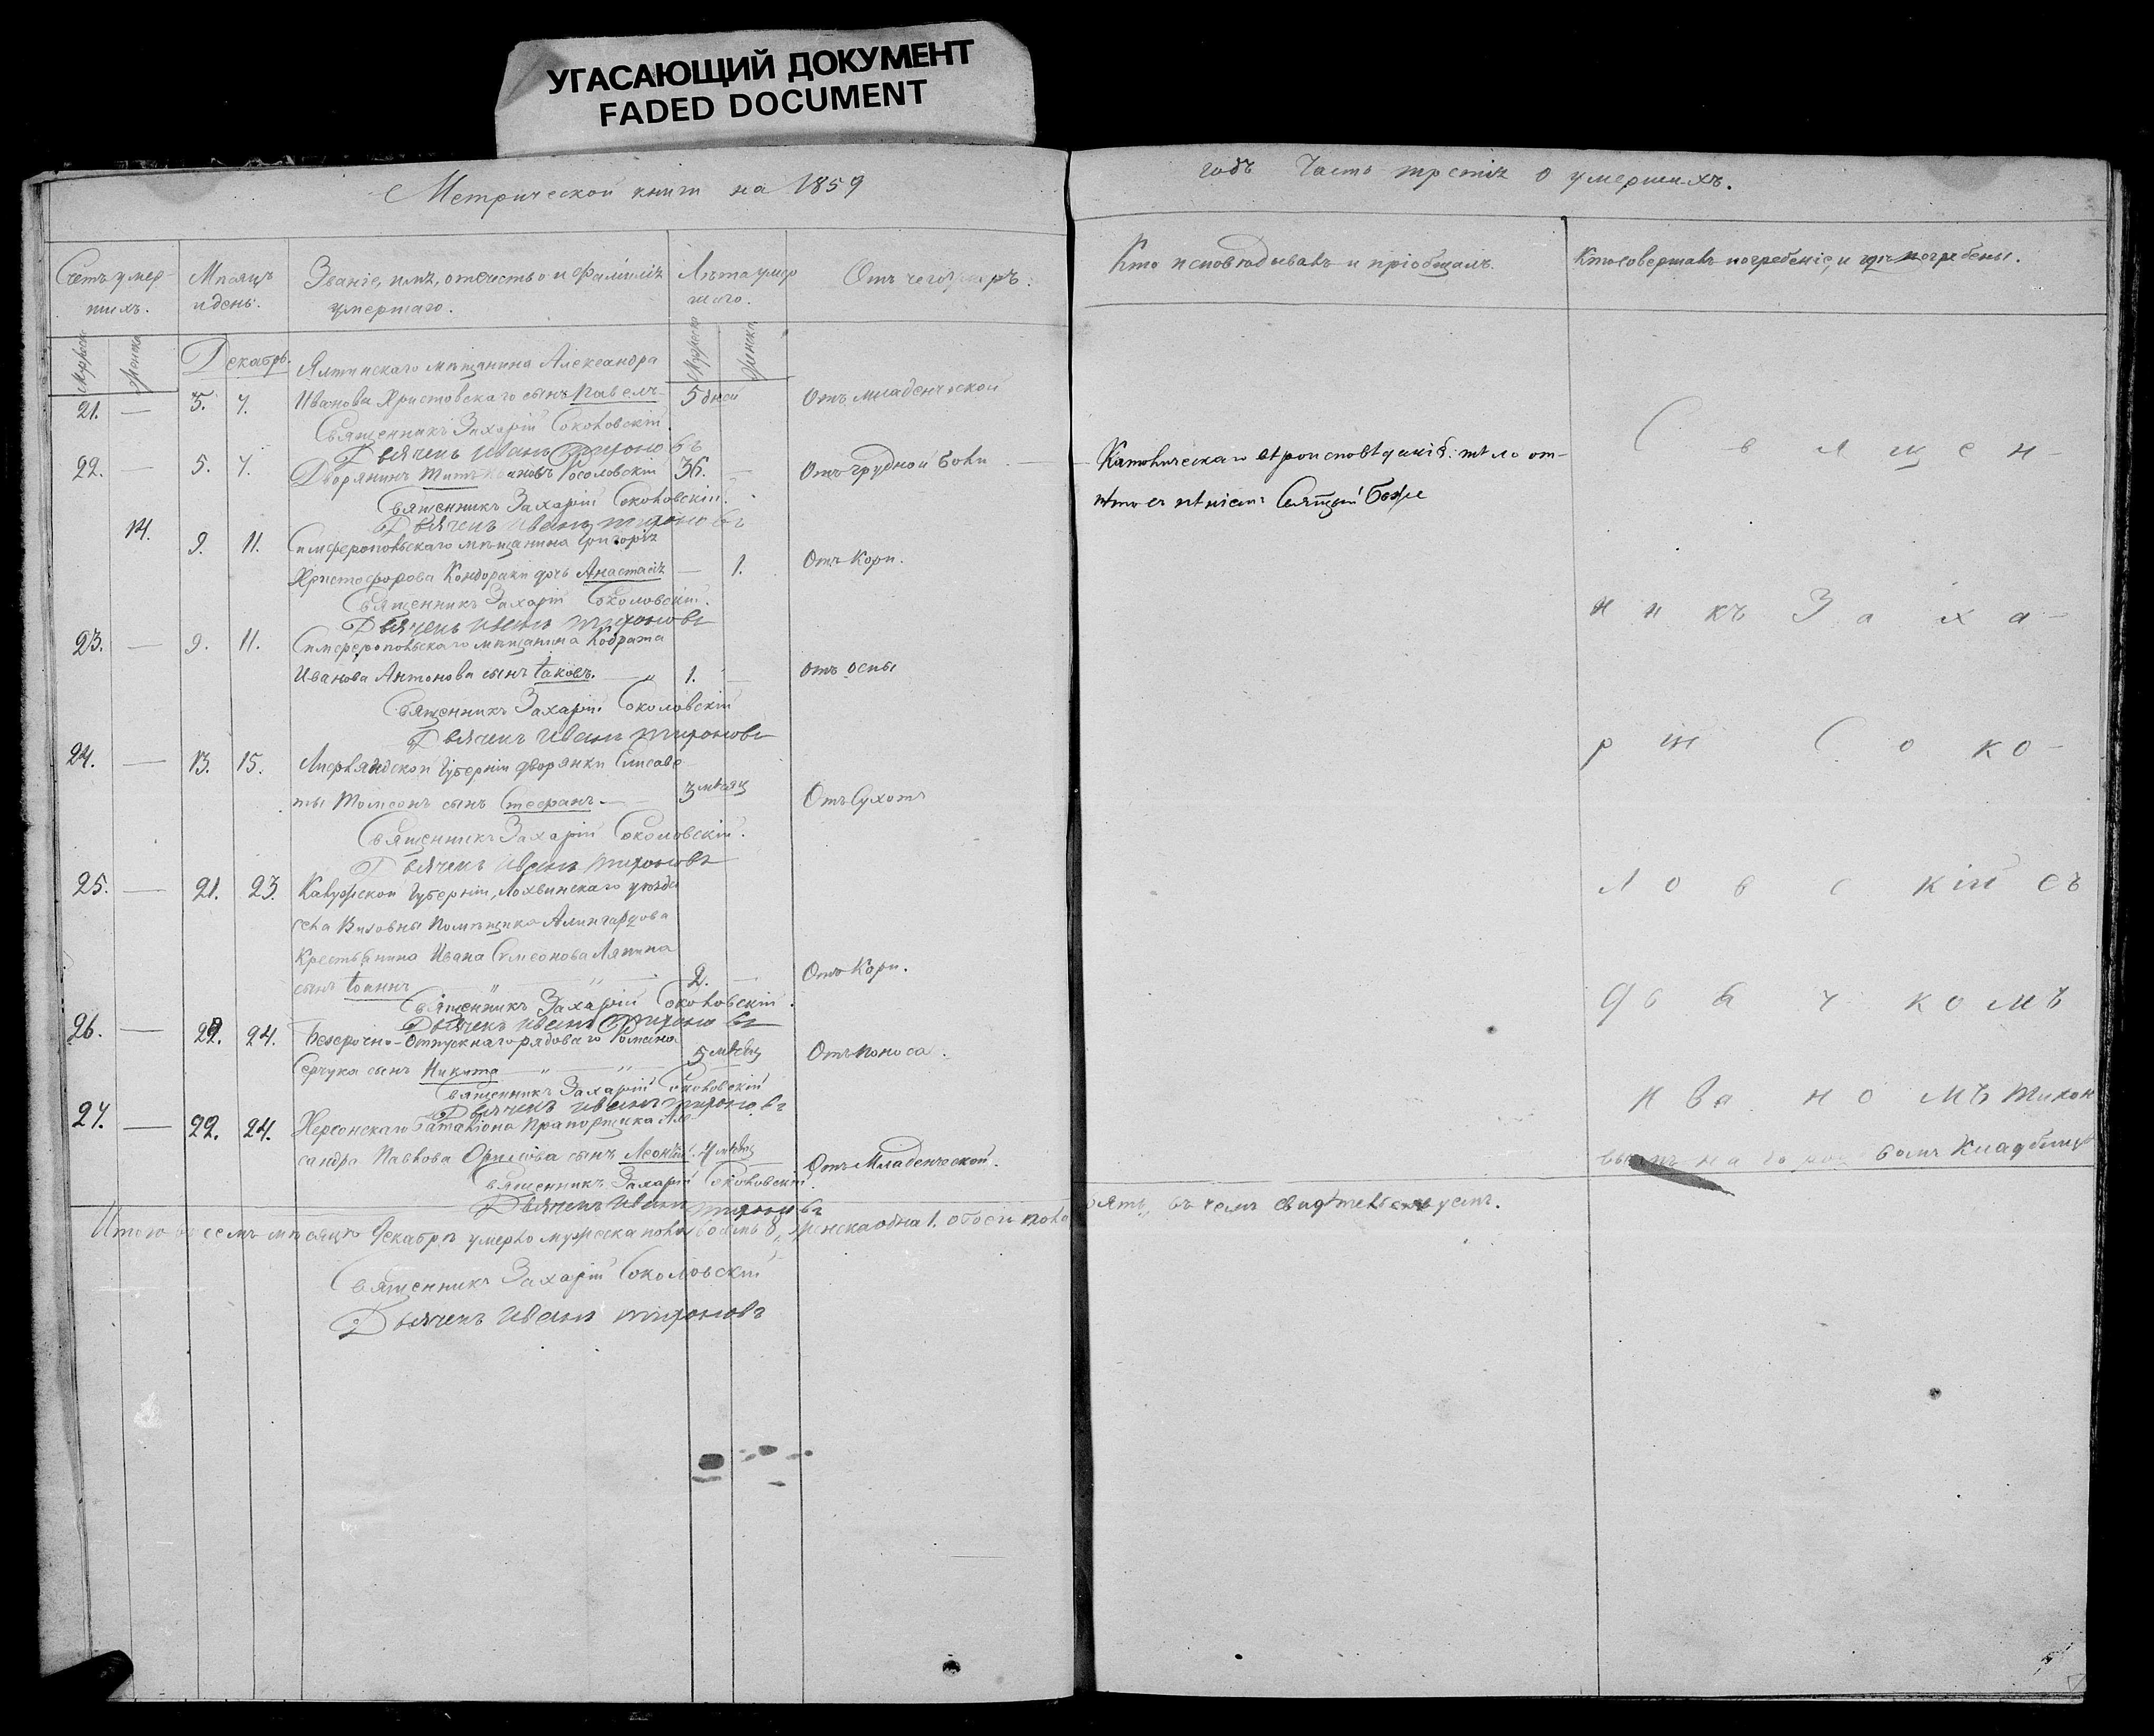 УГАСАЮЩИЙ ДОКУМЕНТ
FADED DOCUMENT
Метрической книги на 1859
годъ Часть третія о умершихъ.
Счетъ умер-
шихъ.
Мѣсяцъ
и день.
Званіе, имя, отчество и фамилія
умершаго.
Лѣта умер
шаго.
Отъ чего умеръ.
Кто исповѣдывалъ и пріобщалъ.
Кто совершалъ погребеніе, и гдѣ погребены.
Мужска
Женска
Декабрь.
Мужска
Женска
Ялтинскаго мѣщанина Александра
21. — 5. 7. Иванова Христовскаго сынъ Павелъ 5 дней Отъ младенческой
Священникъ Захарій Соколовскій
Дьячекъ Иванъ Тихоновъ
22. — 5. 7. Дворянинъ Титъ Ивановъ Росоловскій 36. — Отъ грудной боли
Католическаго вѣроисповѣданія: тѣло от-
пѣто съ пѣніем: Святый Боже
Священникъ Захарій Соколовскій.
Дьячекъ Иванъ Тихоновъ
14. 9. 11. Симферопольскаго мѣщанина Григорія
Христофорова Кондораки дочь Анастасія — 1. Отъ Кори.
Священникъ Захарій Соколовскій.
Дьячекъ Иванъ Тихоновъ
23. — 9. 11. Симферопольскаго мѣщанина Кодрата
Иванова Антонова сынъ Іаковъ. — „ 1. — отъ оспы
Священникъ Захарій Соколовскій
Дьячекъ Иванъ Тихоновъ
24. — 13. 15. Лифляндской Губерніи дворянки Елисаве
ты Томсонъ сынъ Стефанъ. — 3 мѣсяц Отъ Сухотъ
Священникъ Захарій Соколовскій.
Дьячекъ Иванъ Тихоновъ
25. — 21. 23. Калужской Губерніи, Лихвинскаго уѣзда
села помѣщика
Крестьянина Ивана Симеонова Ляпина
сынъ Іоаннъ — „ — „ — 2. — Отъ Кори.
Священникъ Захарій Соколовскій.
Дьячекъ Иванъ Тихоновъ
26. — 22. 24. Безсрочно-Отпускнаго рядоваго Романа
Серчука сынъ Никита — „ — „ 5 мѣсяц Отъ поноса.
Священникъ Захарій Соколовскій
Дьячекъ Иванъ Тихоновъ
27. — 22. 24. Херсонскаго Баталіона Прапорщика Але
сандра Павлова сынъ Леонтій. 7 мѣсяц Отъ Младенческой.
Священникъ Захарій Соколовскій.
Дьячекъ Иванъ Тихоновъ
Священ-
никъ Заха-
рій Соко-
ловскій съ
дьячкомъ
Иваномъ Тихон
вымъ на скомъ Кладбищѣ
Итого въ семъ мѣсяцѣ Декабрѣ умерло мужеска пола восемь 8, женска одна 1. обоего пола девять, въ чемъ свидѣтельствуемъ.
Священникъ Захарій Соколовскій
Дьячекъ Иванъ Тихоновъ